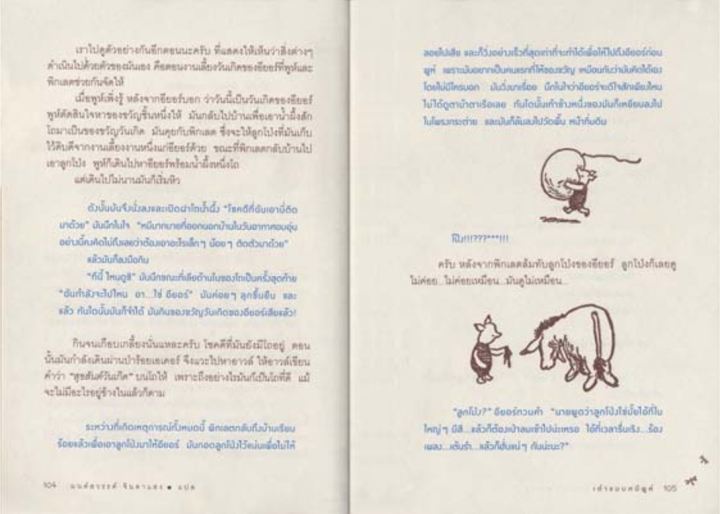 เราไปดูตัวอย่างกันอีกตอนนะครับ ที่แสดงให้เห็นว่าสิ่งต่างๆ
ดำเนินไปด้วยตัวของมันเอง คือตอนงานเลี้ยงวันเกิดของอียอร์ที่พูห์และ
พิกเลตช่วยกันจัดให้
เมื่อพูห์เพิ่งรู้ หลังจากอียอร์บอก ว่าวันนี้เป็นวันเกิดของอียอร์
พูห์ตัดสินใจหาของขวัญชิ้นหนึ่งให้ มันกลับไปบ้านเพื่อเอาน้ำผึ้งสัก
โถมาเป็นของขวัญวันเกิด มันคุยกับพิกเลต ซึ่งจะให้ลูกโป่งที่มันเก็บ
ไว้ดิบดีจากงานเลี้ยงงานหนึ่งแก่อียอร์ด้วย ขณะที่พิกเลตกลับบ้านไป
เอาลูกโป่ง พูห์ก็เดินไปหาอียอร์พร้อมน้ำผึ้งหนึ่งโถ
แต่เดินไปไม่นานมันก็เริ่มหิว
ดังนั้นมันจึงนั่งลงและเปิดฝาโถน้ำผึ้ง "โชคดีที่ฉันเอานี่ติด
มาด้วย" มันนึกในใจ "หมีมากมายที่ออกนอกบ้านในวันอากาศอบอุ่น
อย่างนี้คงคิดไม่ถึงเลยว่าต้องเอาอะไรเล็กๆ น้อยๆ ติดตัวมาด้วย"
แล้วมันก็ลงมือกิน
"ทีนี้ ไหนดูซิ" มันนึกขณะที่เลียด้านในของโถเป็นครั้งสุดท้าย
"ฉันกำลังจะไปไหน อา...ใช่ อียอร์" มันค่อยๆ ลุกขึ้นยืน และ
แล้ว ทันใดนั้นมันก็จำได้ มันกินของขวัญวันเกิดของอียอร์เสียแล้ว!
กินจนเกือบเกลี้ยงนั่นแหละครับ โชคดีที่มันยังมีโถอยู่ ตอน
นั้นมันกำลังเดินผ่านป่าร้อยเอเคอร์ จึงแวะไปหาอาวล์ ให้อาวล์เขียน
คำว่า "สุขสันต์วันเกิด" บนโถให้ เพราะถึงอย่างไรมันก็เป็นโถที่ดี แม้
จะไม่มีอะไรอยู่ข้างในแล้วก็ตาม
ระหว่างที่เกิดเหตุการณ์ทั้งหมดนี้ พิกเลตกลับถึงบ้านเรียบ
ร้อยแล้วเพื่อเอาลูกโป่งมาให้อียอร์ มันกอดลูกโป่งไว้แน่นเพื่อไม่ให้
104 มนต์สวรรค์ จินดาแสง • แปล
ลอยไปเสีย และก็วิ่งอย่างเร็วที่สุดเท่าที่จะทำได้เพื่อให้ไปถึงอียอร์ก่อน
พูห์ เพราะมันอยากเป็นคนแรกที่ให้ของขวัญ เหมือนกับว่ามันคิดได้เอง
โดยไม่มีใครบอก มันวิ่งมาเรื่อย นึกในใจว่าอียอร์จะดีใจสักเพียงไหน
ไม่ได้ดูตาม้าตาเรือเลย ทันใดนั้นเท้าข้างหนึ่งของมันก็เหยียบลงไป
ในโพรงกระต่าย และมันก็ล้มลงไปวัดพื้น หน้าทิ่มดิน
โป้ง!!!???***!!!
ครับ หลังจากพิกเลตล้มทับลูกโป่งของอียอร์ ลูกโป่งก็เลยดู
ไม่ค่อย...ไม่ค่อยเหมือน...มันดูไม่เหมือน...
"ลูกโป่ง?" อียอร์ทวนคำ "นายพูดว่าลูกโป่งใช่มั้ยไอ้ที่ใบ
ใหญ่ๆ มีสี...แล้วก็ต้องเป่าลมเข้าไปน่ะเหรอ ไอ้ที่เวลารื่นเริง...ร้อง
เพลง...เต้นรำ...แล้วก็ฮั่นแน่ๆ กันน่ะนะ?"
เต๋าแบบหมีพูห์ 105